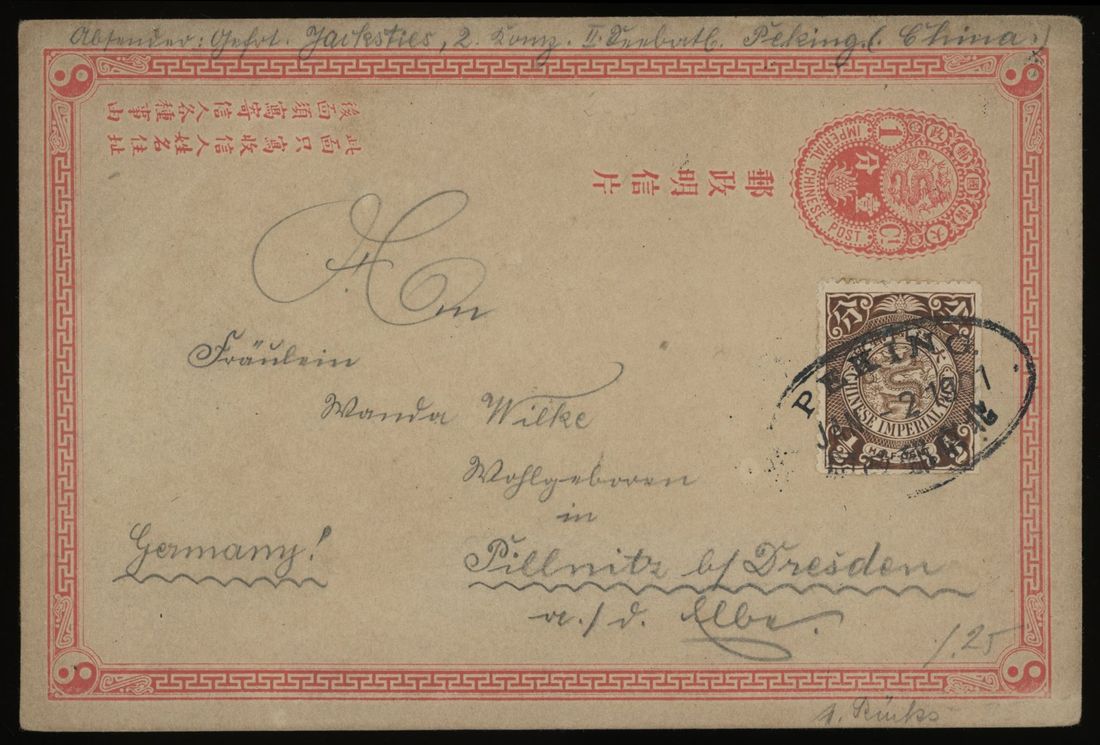 Absender: Gefrt. Jacksties, 2. Komp. II. Seebatl. Peking. (China.)
後面須寫寄信人各種事由
此面只寫收信人姓名住址
郵政明信片
大清國郵政
1
壹分
Ct
IMPERIAL CHINESE POST
An
Fräulein
Wanda Wilke
Wohlgeboren
in
Germany!
Pillnitz b/ Dresden
a./d. Elbe.
CHINESE IMPERIAL
HALF CENT
PEKING.
JAN -2
1.25